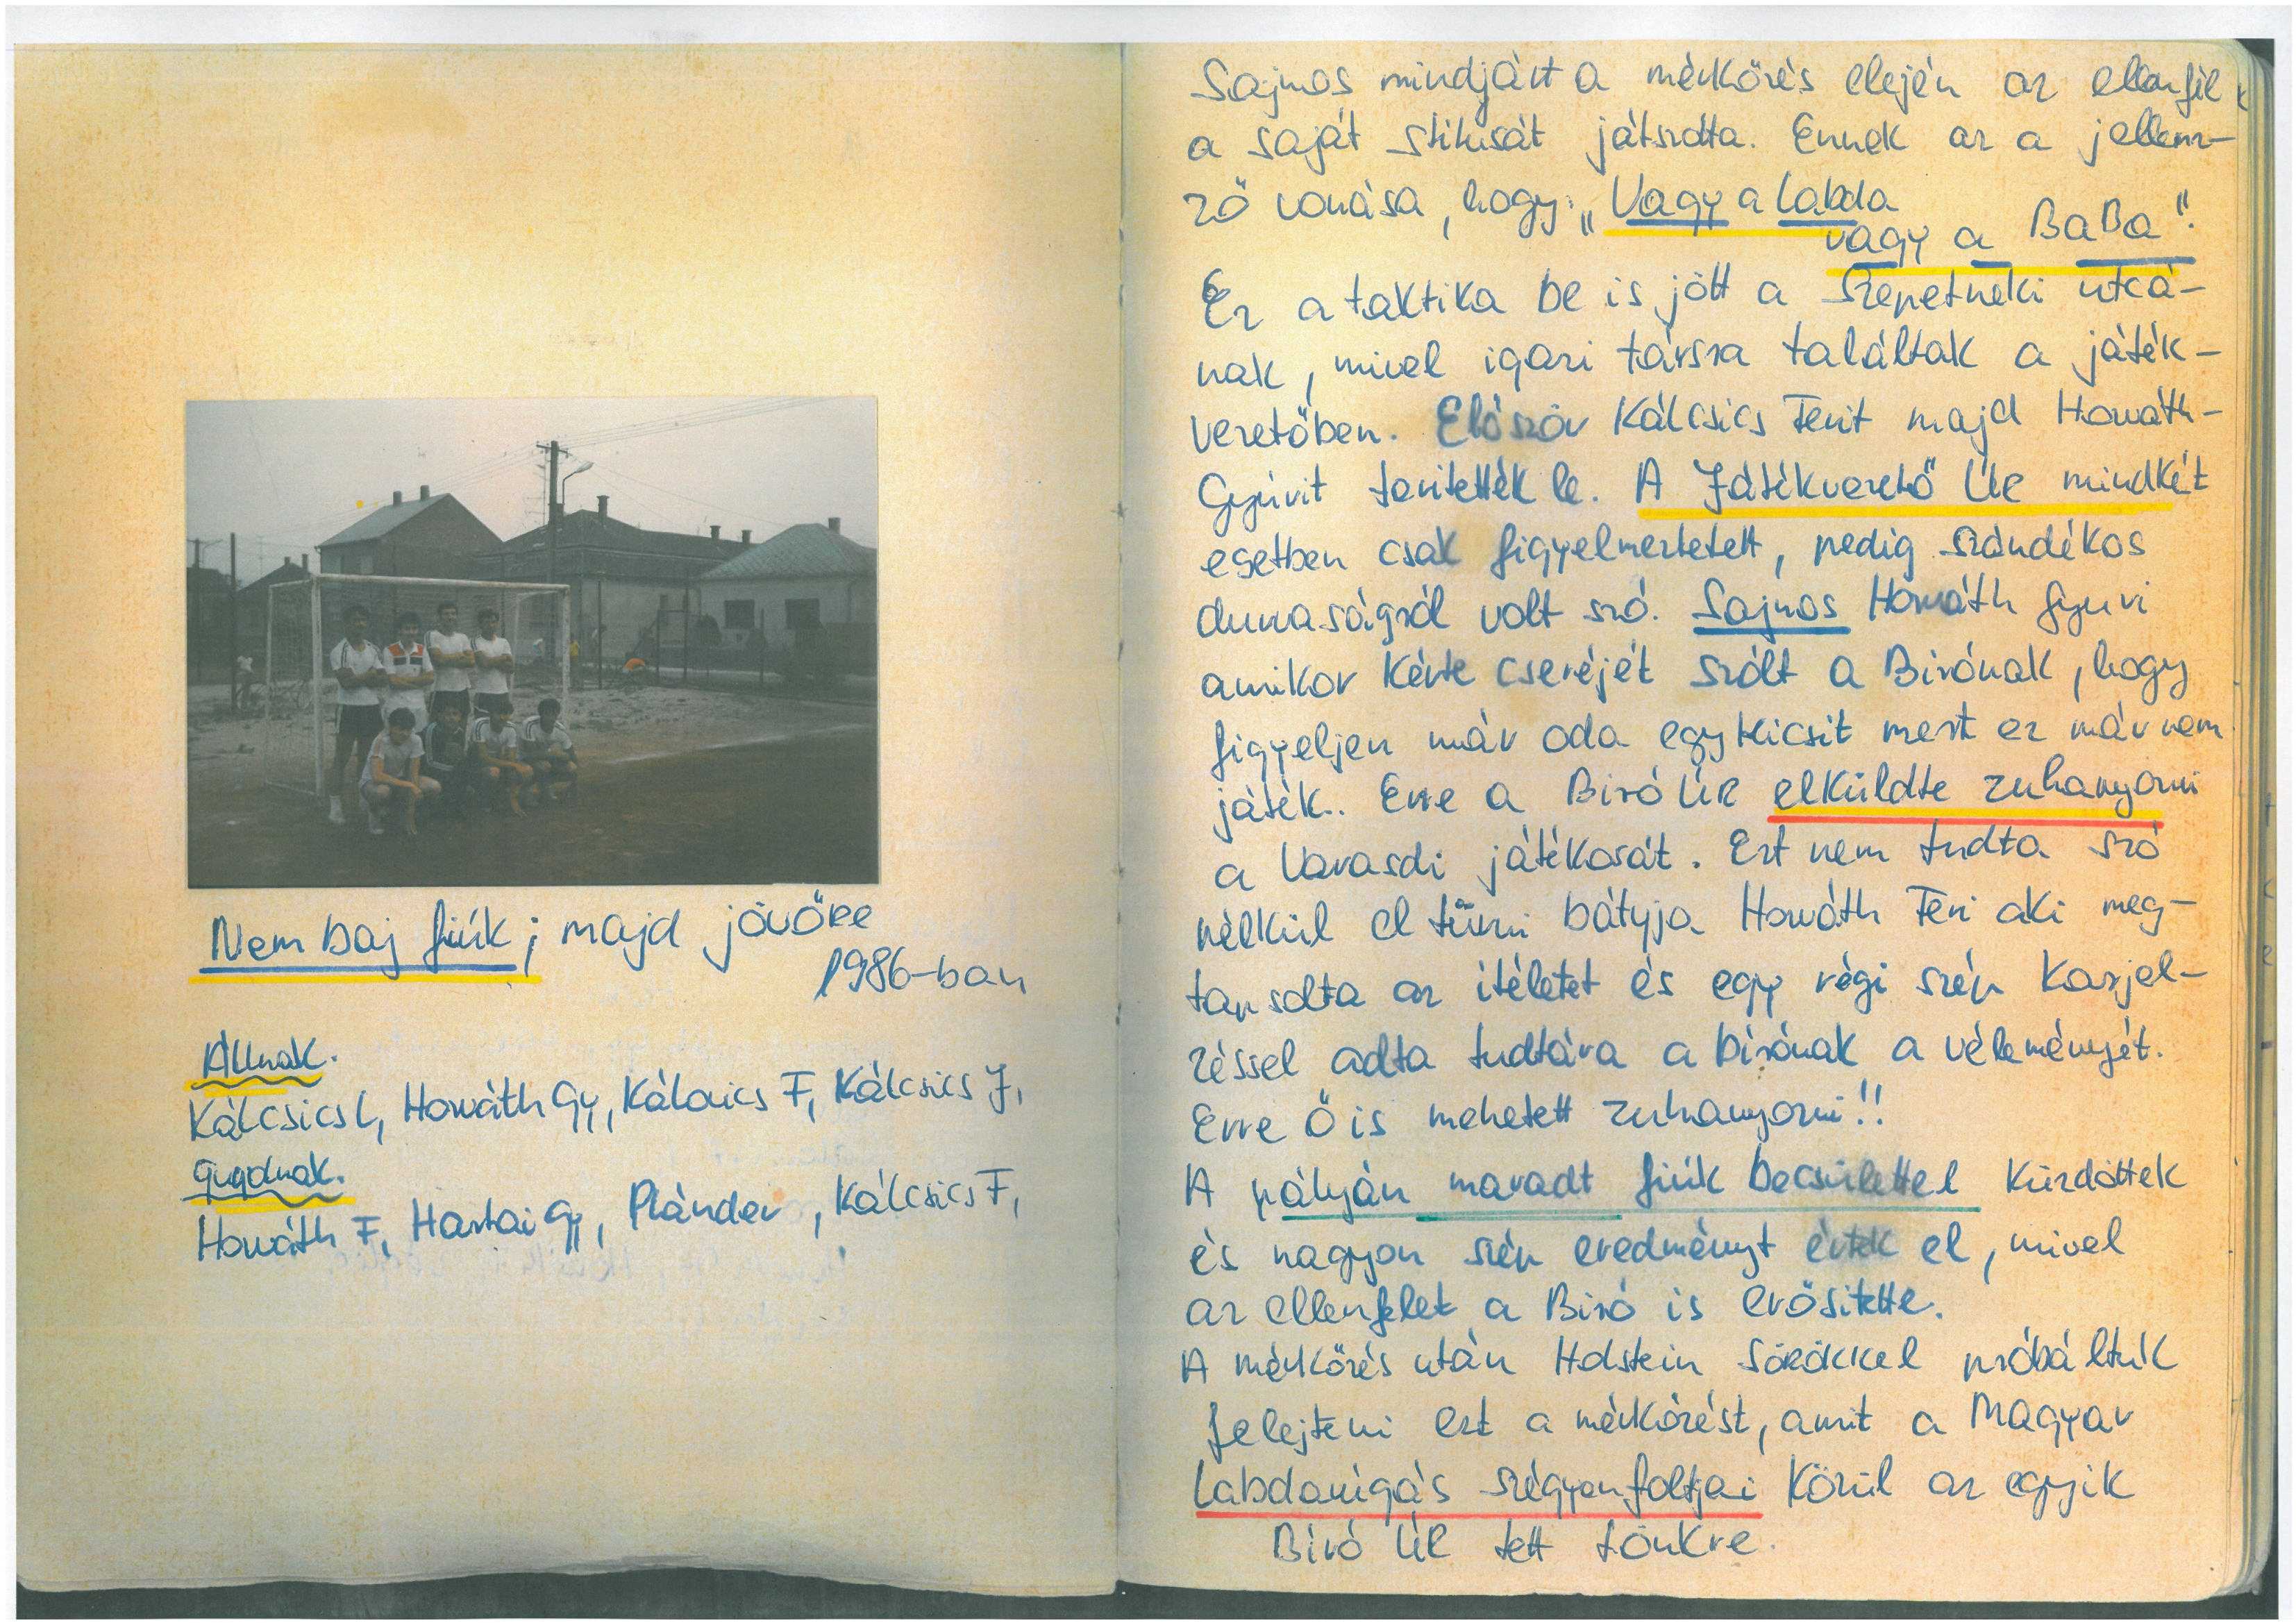 Nem baj fiúk; majd jövőre
1986-ban
Állnak.
Kálcsics L, Horváth Gy, Kálcsics F, Kálcsics J,
Guggolnak.
Horváth F, Hartai Gy, Plánder, Kálcsics F,
Sajnos mindjárt a mérkőzés elején az ellenfél
a saját stílusát játszotta. Ennek az a jellem-
ző vonása, hogy: „Vagy a labda
vagy a BaBa".
Ez a taktika be is jött a Szepetneki utcá-
nak, mivel igazi társra találtak a játék-
vezetőben. Először Kálcsics Ferit majd Horváth-
Gyurit terítették le. A Játékvezető Úr mindkét
esetben csak figyelmeztetett, pedig szándékos
durvaságról volt szó. Sajnos Horváth Gyuri
amikor kérte cseréjét szólt a Birónak, hogy
figyeljen már oda egy kicsit mert ez már nem
játék.. Erre a Biró Úr elküldte zuhanyozni
a Varasdi játékosát. Ezt nem tudta szó
nélkül el tűrni bátyja Horváth Feri aki meg-
tapsolta az itéletet és egy régi szép karjel-
zéssel adta tudtára a birónak a véleményét.
Erre Ő is mehetett zuhanyozni!!
A pályán maradt fiúk becsülettel küzdöttek
és nagyon szép eredményt értek el, mivel
az ellenfelet a Biró is erősitette.
A mérkőzés után Holstein sörökkel próbáltuk
felejteni ezt a mérkőzést, amit a Magyar
Labdarúgás szégyenfoltjai közül az egyik
Biró Úr tett tönkre.